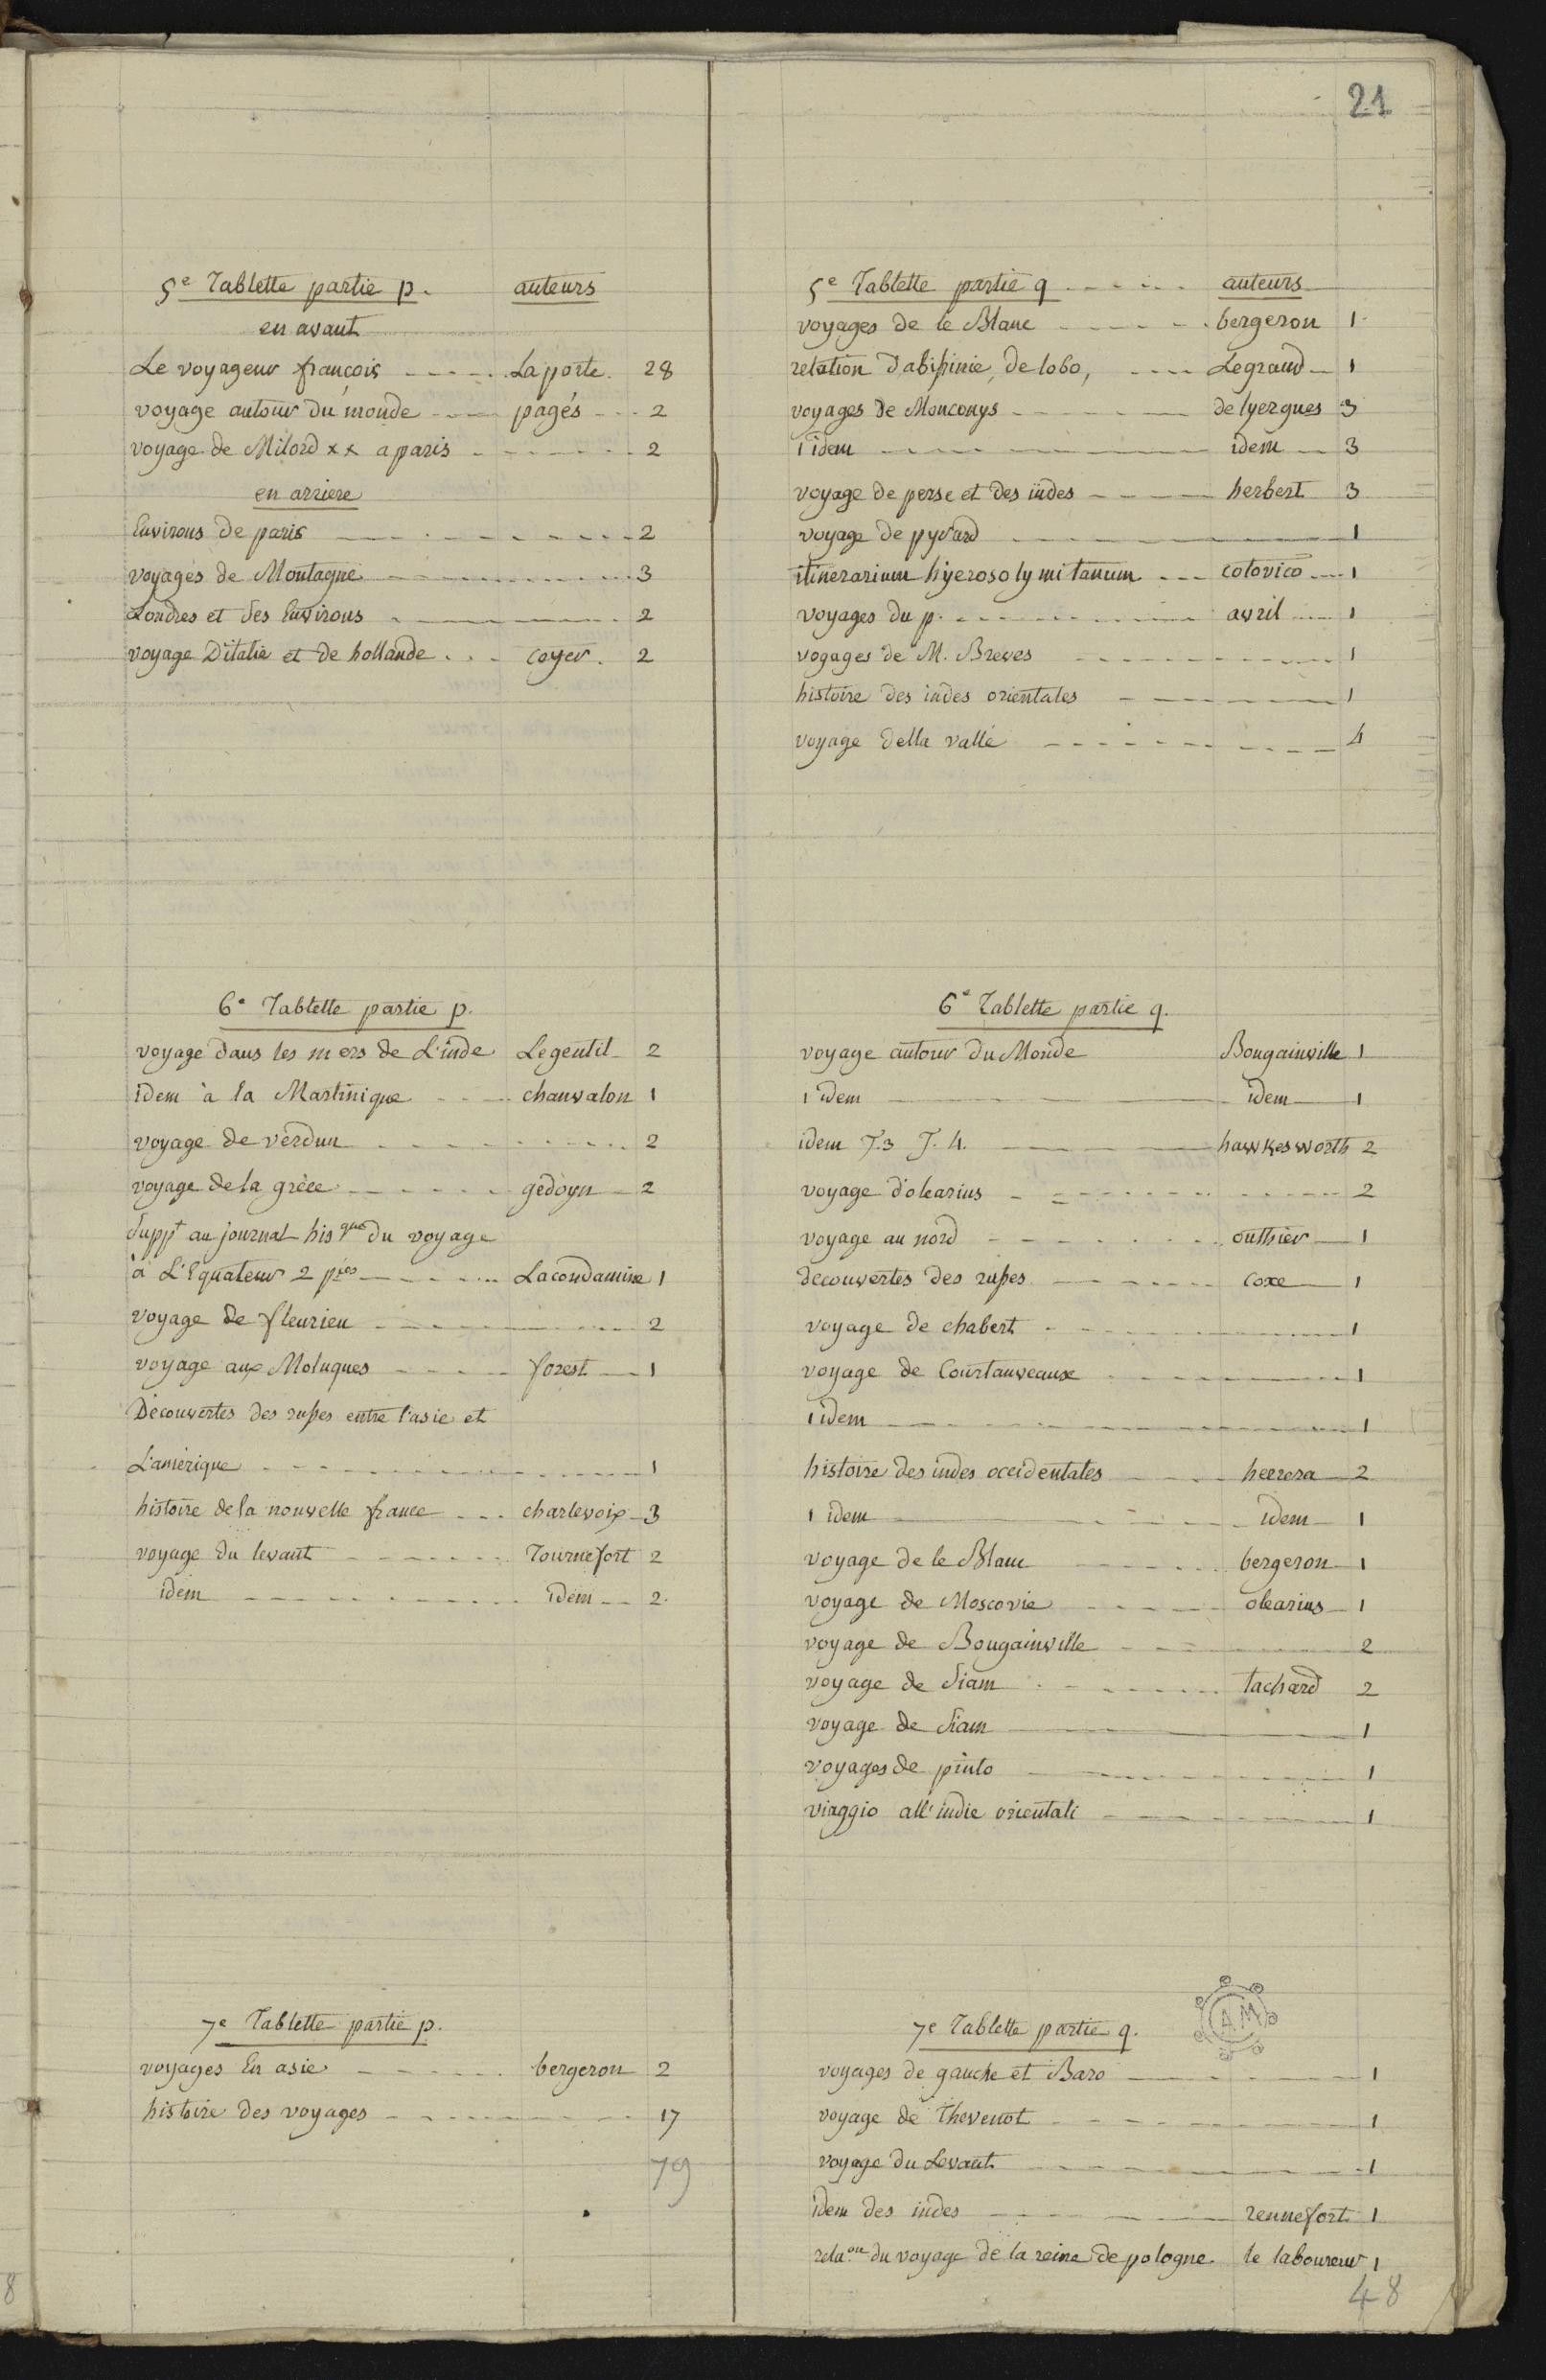 21
5e Tablette partie p. auteurs
en avant
Le voyageur françois Laporte. 28
voyage autour du monde pagés 2
voyage de Milord xx a paris 2
en arriere
Environs de paris 2
voyages de Montagne 3
Londres et ses Environs 2
voyage D'italie et de hollande coyer. 2
5e Tablette partie q auteurs
voyages de le Blanc bergeron 1
relation D'abissinie, de lobo, Legrand 1
voyages de Monconys de lyergues 3
1 idem idem 3
voyage de perse et des indes herbert 3
voyage de pyrard 1
itinerarium hyerosolymitanum cotovico 1
voyages du p. avril 1
voyages de M. Breves 1
histoire des indes orientales 1
voyage della vallé 4
6e Tablette partie p.
voyage dans les mers de L'inde Legentil 2
idem à la Martinique chanvalon 1
voyage de verdun 2
voyage de la grèce gédoyn 2
Suppt au journal hisque du voyage
à L'Equateur 2 pies Lacondamine 1
voyage de fleurieu 2
voyage aux Moluques forest 1
Découvertes des russes entre l'asie et
L'amérique 1
histoire de la nouvelle france charlevoix 3
voyage du levant Tournefort 2
idem idem 2
6e Tablette partie q.
voyage autour du Monde Bougainville 1
1 idem idem 1
idem T.3 T.4. hawkesworth 2
voyage d'olearius 2
voyage au nord outhier 1
decouvertes des russes coxe 1
voyage de chabert 1
voyage de Courtanveaux 1
1 idem 1
histoire des indes occidentales herrera 2
1 idem idem 1
voyage de le Blanc bergeron 1
voyage de Moscovie olearius 1
voyage de Bougainville 2
voyage de Siam tachard 2
voyage de Siam 1
voyages de pinto 1
viaggio all'indie orientali 1
7e Tablette partie p.
voyages En asie bergeron 2
histoire des voyages 17
79
7e Tablette partie q.
AM
voyages de gauche et Baro 1
voyage de Thevenot 1
voyage du Levant 1
idem des indes rennefort 1
rela.on du voyage de la reine de pologne le laboureur 1
48
8